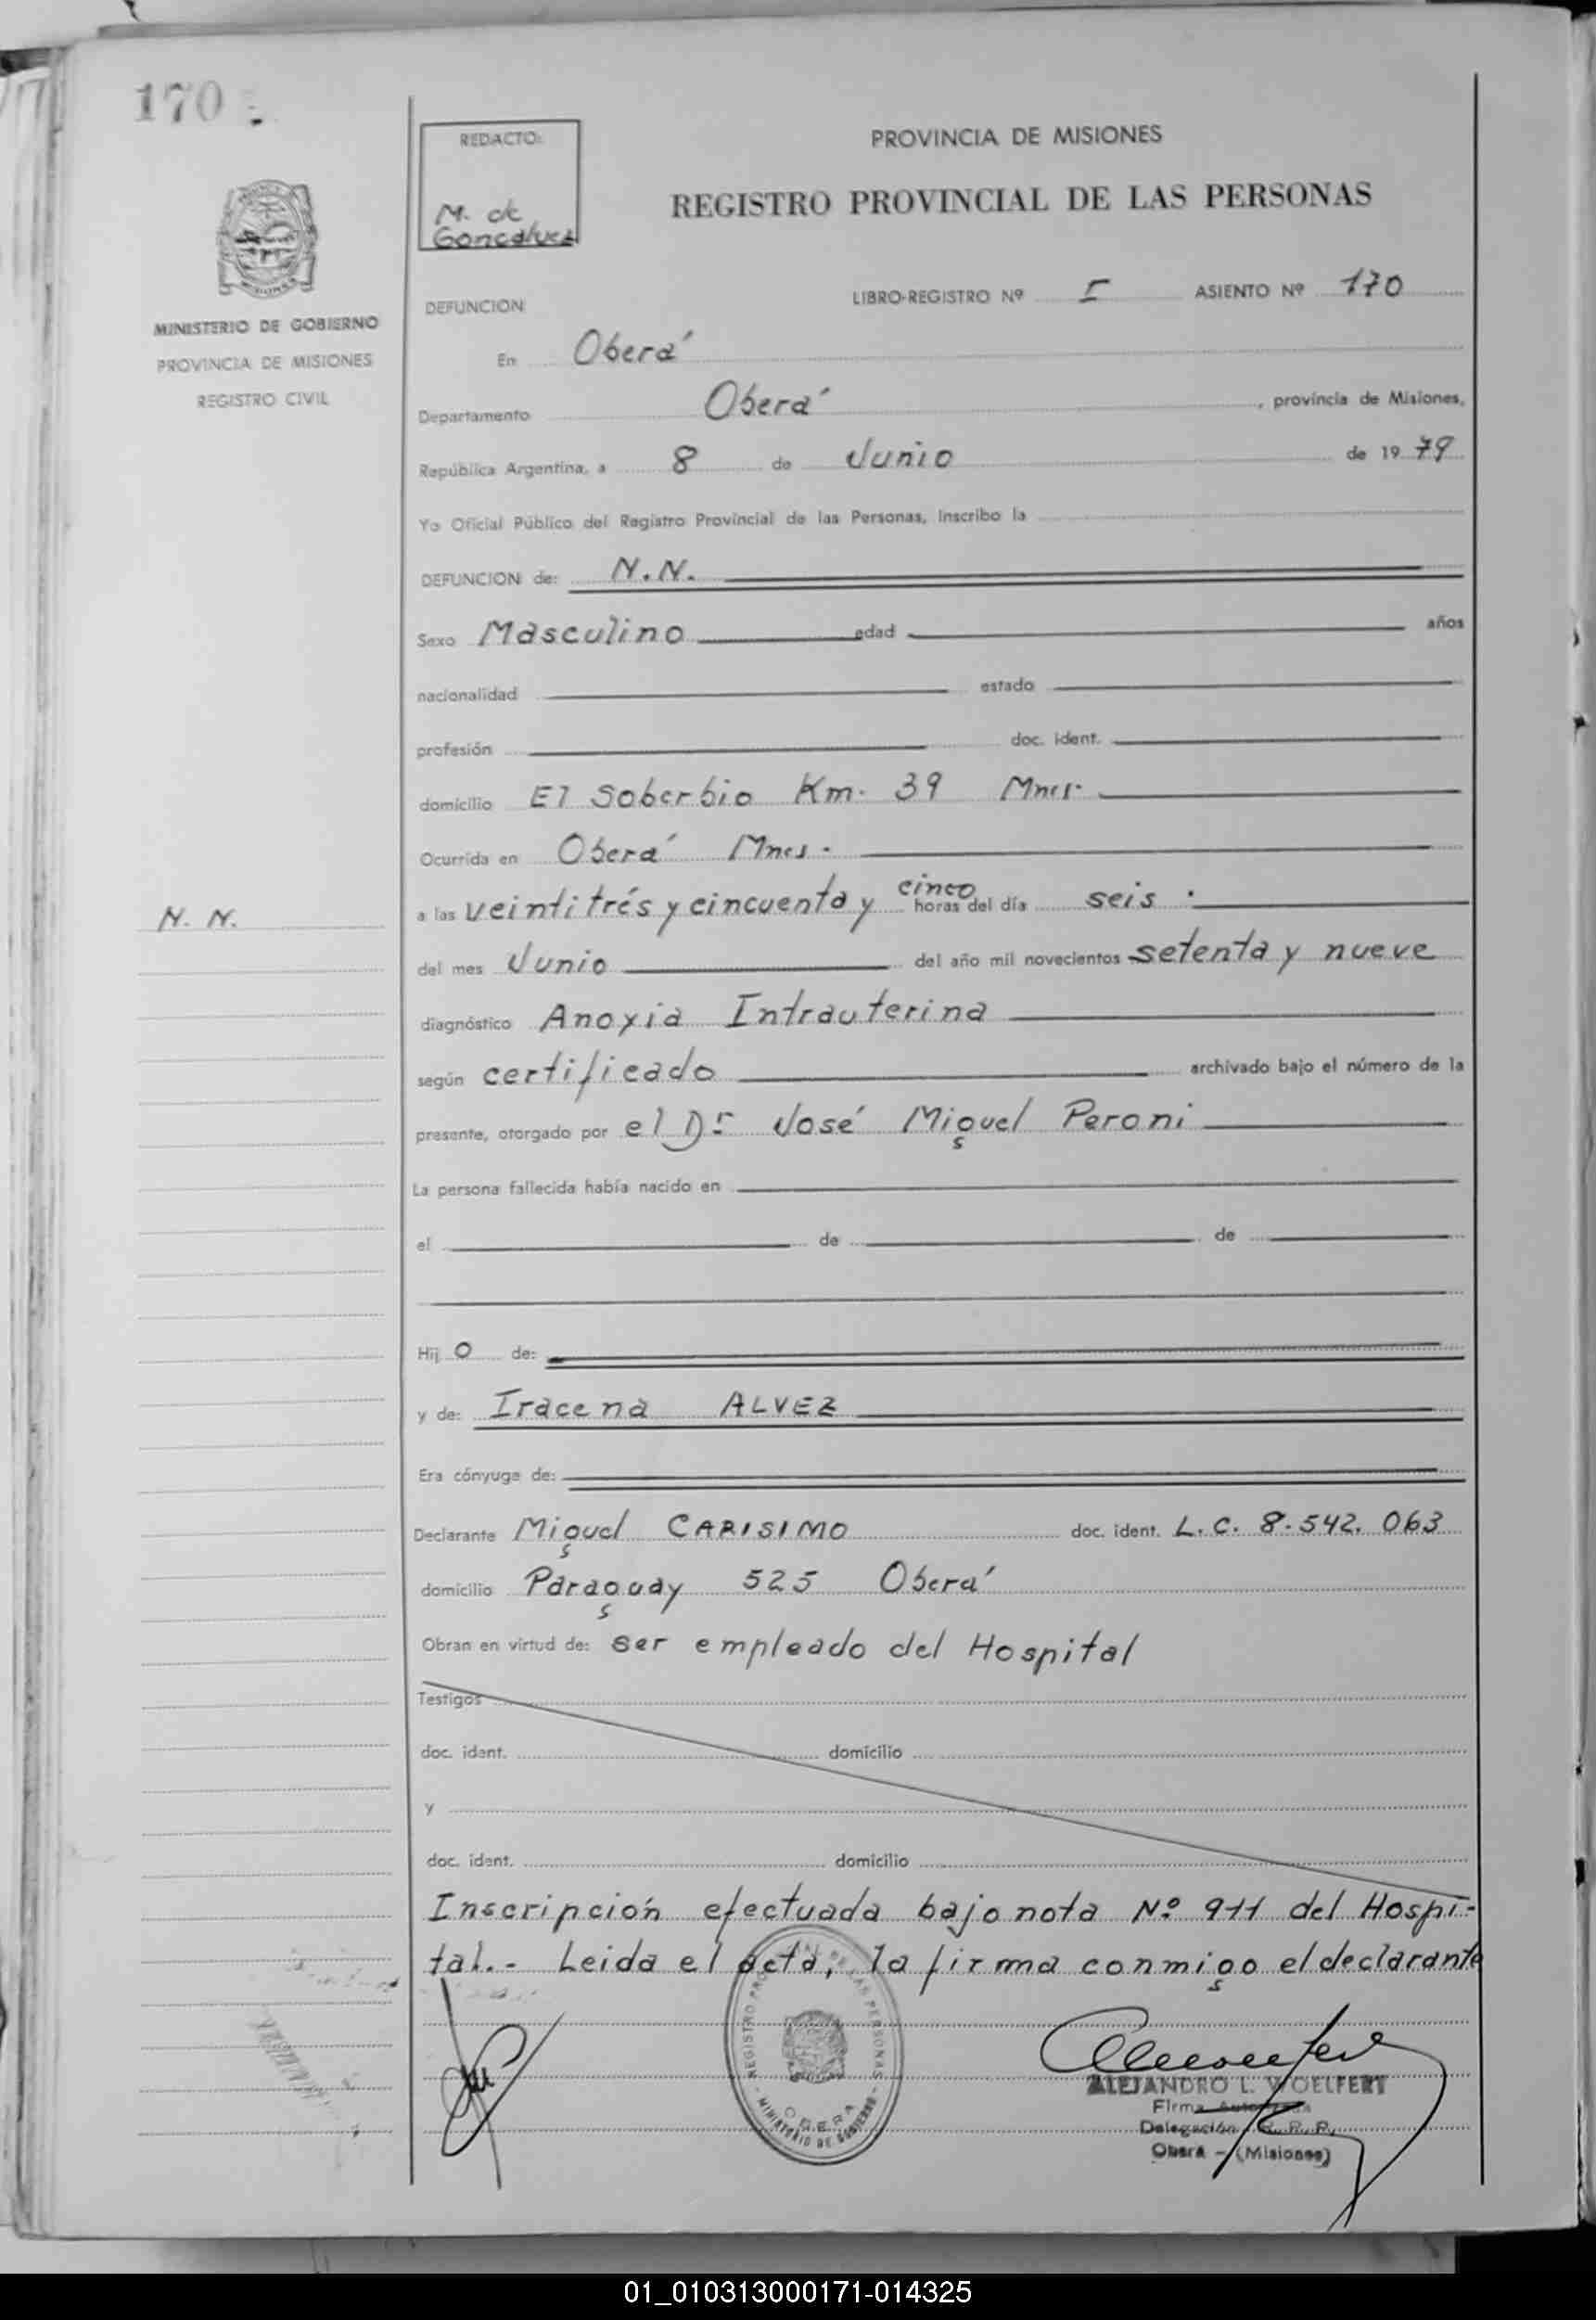 170
REDACTO:
M. de
Goncalvez
PROVINCIA DE MISIONES
REGISTRO PROVINCIAL DE LAS PERSONAS
MINISTERIO DE GOBIERNO
PROVINCIA DE MISIONES
REGISTRO CIVIL
DEFUNCION
LIBRO-REGISTRO Nº I ASIENTO Nº 170
En Oberá
Departamento Oberá, provincia de Misiones,
República Argentina, a 8 de Junio de 1979
Yo Oficial Público del Registro Provincial de las Personas, inscribo la
DEFUNCION de: N.N.
Sexo Masculino edad años
nacionalidad estado
profesión doc. ident.
domicilio El Soberbio Km. 39 Mnes.
Ocurrida en Oberá Mnes.
N. N.
a las veintitrés y cincuenta y cinco horas del día seis
del mes Junio del año mil novecientos setenta y nueve
diagnóstico Anoxia Intrauterina
según certificado archivado bajo el número de la
presente, otorgado por el Dr José Miguel Peroni
La persona fallecida había nacido en
el de de
Hijo de:
y de: Iracena ALVEZ
Era cónyuge de:
Declarante Miguel CARISIMO doc. ident. L.C. 8.542.063
domicilio Paraguay 525 Oberá
Obran en virtud de: ser empleado del Hospital
Testigos
doc. ident. domicilio
y
doc. ident. domicilio
Inscripción efectuada bajo nota Nº 911 del Hospi-
tal.- Leida el acta, la firma conmigo el declarante
REGISTRO PROVINCIAL DE LAS PERSONAS
OBERA
MINISTERIO DE GOBIERNO
ALEJANDRO L. WOELFERT
Firma Autorizada
Delegación R. P. P.
Oberá - (Misiones)
01_010313000171-014325